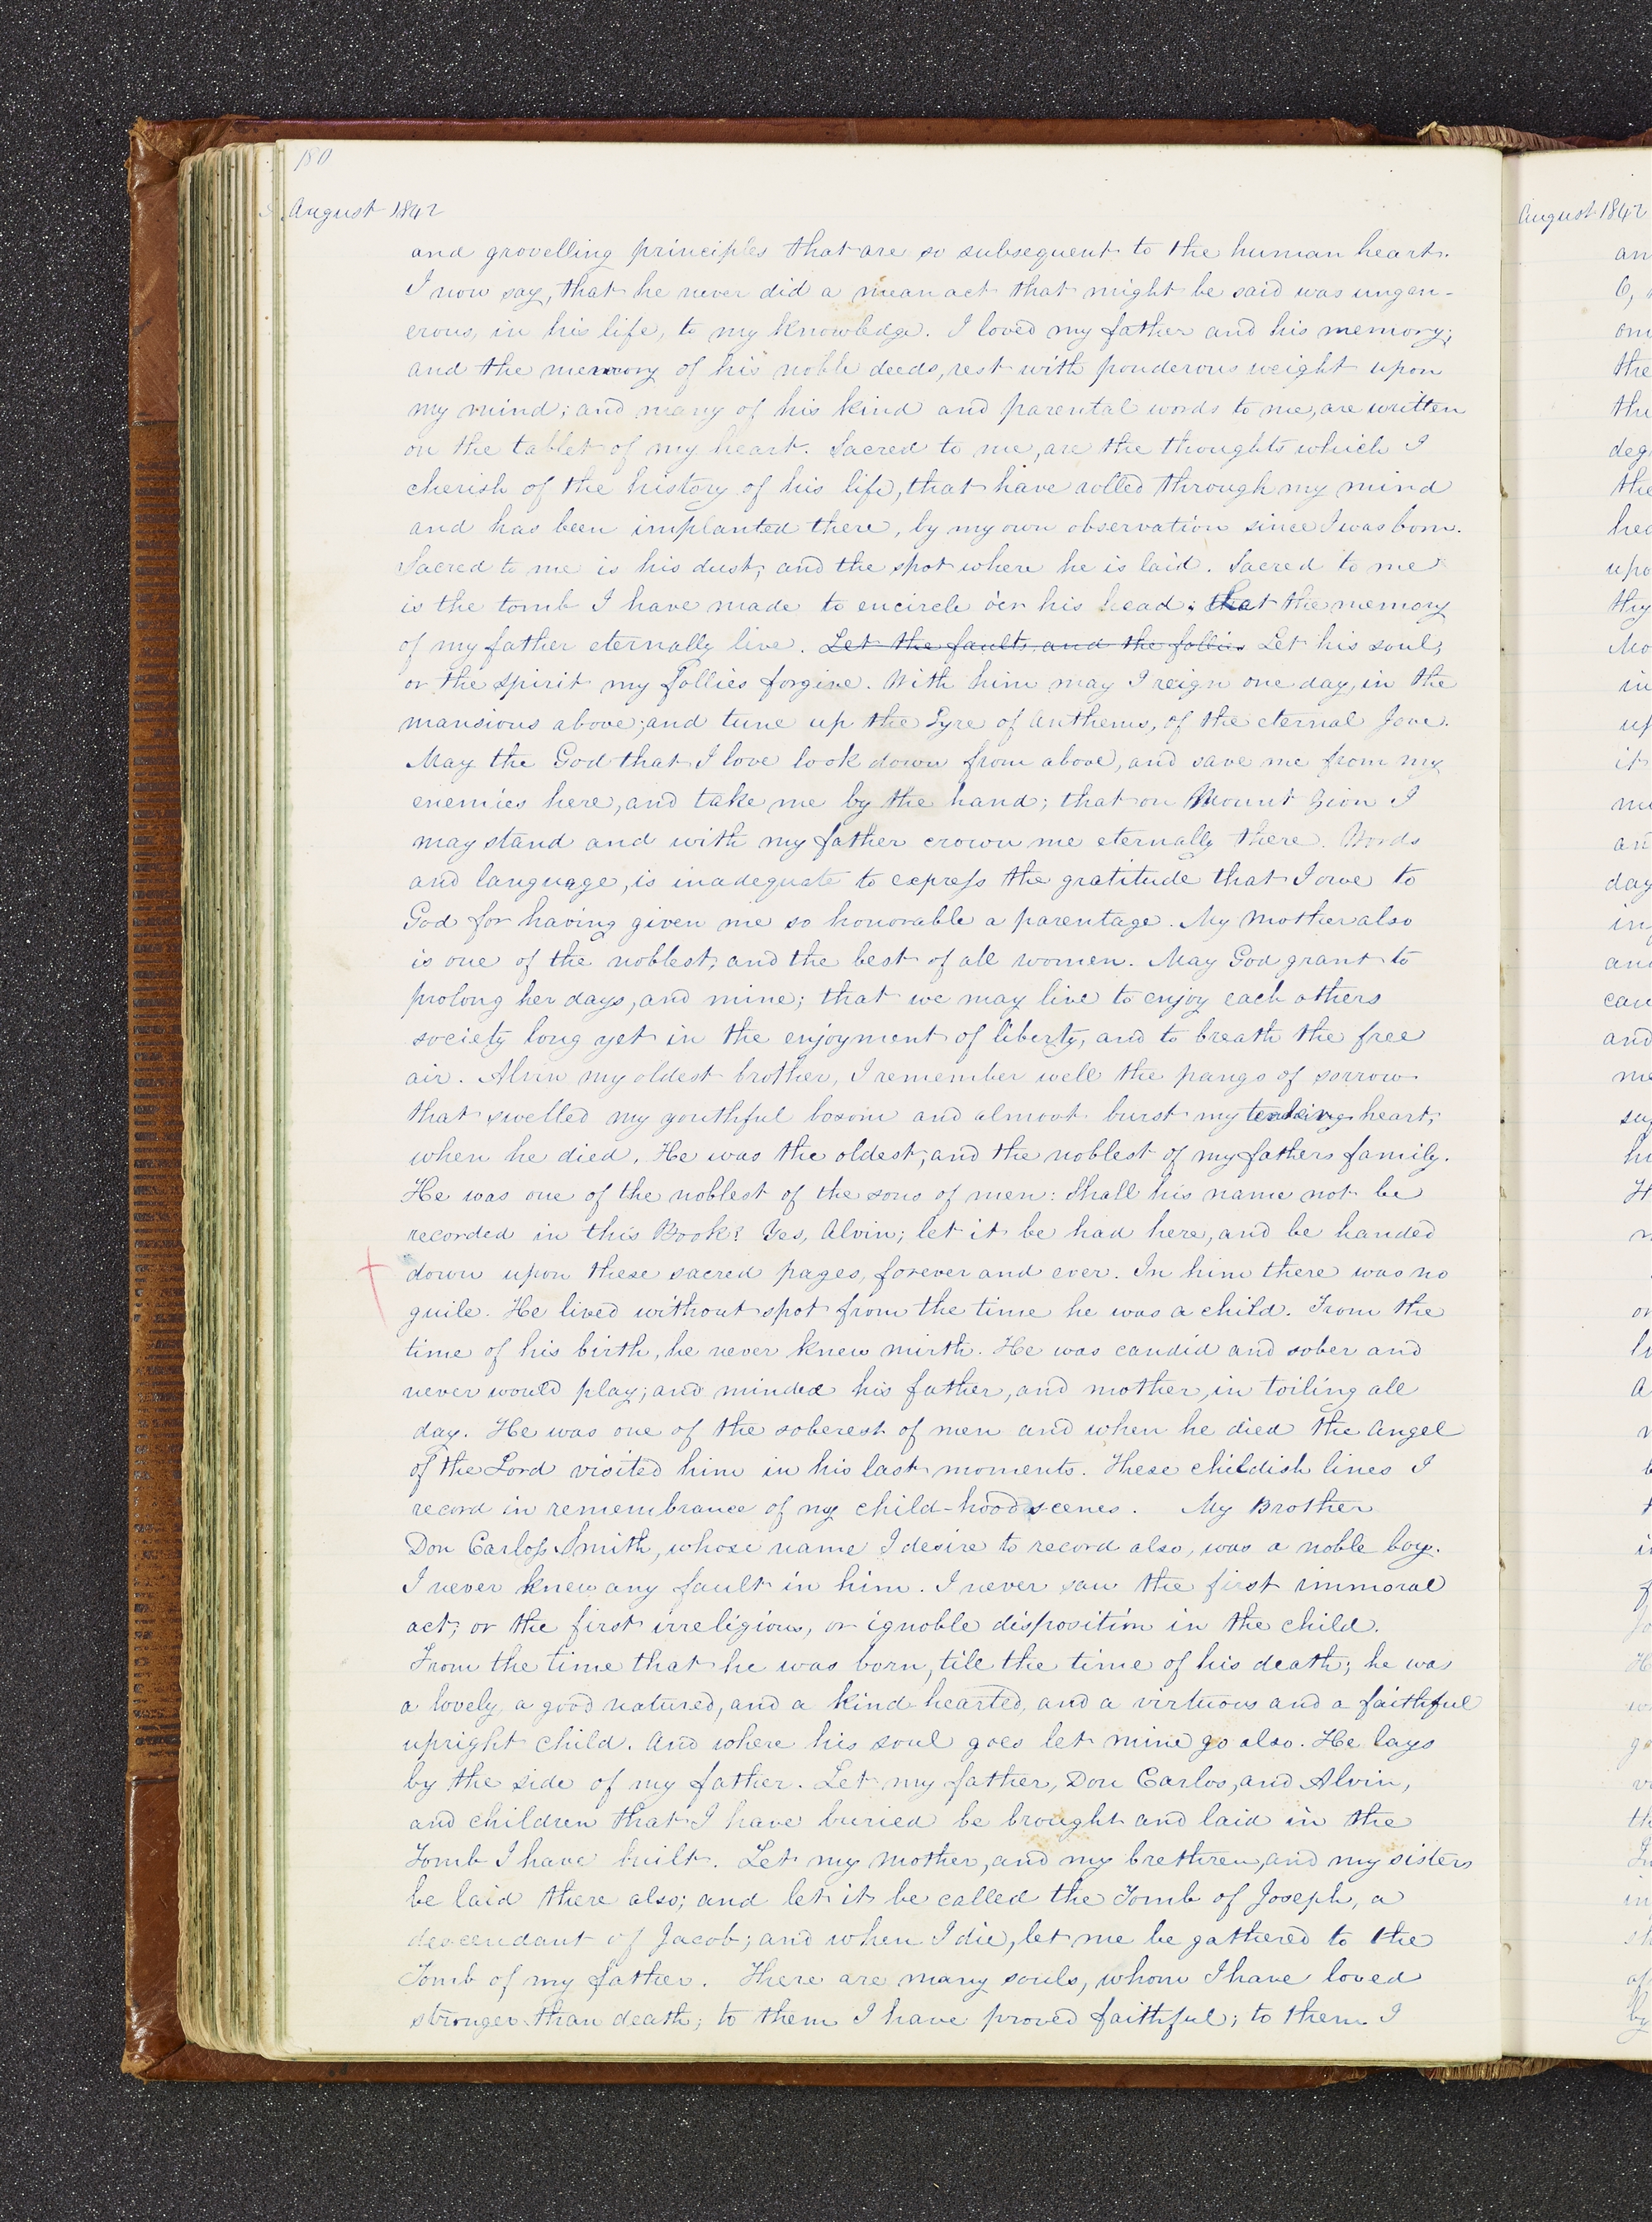 180
August 1842
and grovelling principles that are so subsequent to the human heart.
I now say, that he never did a mean act that might be said was ungen-
erous, in his life, to my knowledge. I loved my father and his memory;
and the memory of his noble deeds, rest with ponderous weight upon
my mind; and many of his kind and parental words to me, are written
on the tablet of my heart. Sacred to me, are the thoughts which I
cherish of the history of his life, that have rolled through my mind
and has been implanted there, by my own observation since I was born.
Sacred to me is his dust, and the spot where he is laid. Sacred to me
is the tomb I have made to encircle o'er his head; that the memory
of my father eternally live. Let the faults and the follies Let his soul,
or the spirit my follies forgive. With him may I reign one day, in the
mansions above; and tune up the Lyre of Anthems, of the eternal Jove.
May the God that I love look down from above, and save me from my
enemies here, and take me by the hand; that on Mount Zion I
may stand and with my father crown me eternally there. Words
and language, is inadequate to express the gratitude that I owe to
God for having given me so honorable a parentage. My mother also
is one of the noblest, and the best of all women. May God grant to
prolong her days, and mine; that we may live to enjoy each others
society long yet in the enjoyment of liberty, and to breath the free
air. Alvin my oldest brother, I remember well the pangs of sorrow
that swelled my youthful bosom and almost burst my heart,
when he died. He was the oldest, and the noblest of my fathers family.
He was one of the noblest of the sons of men: Shall his name not be
recorded in this Book? Yes, Alvin; let it be had here, and be handed
down upon these sacred pages, forever and ever. In him there was no
guile. He lived without spot from the time he was a child. From the
time of his birth, he never knew mirth. He was candid and sober and
never would play; and minded his father, and mother, in toiling all
day. He was one of the soberest of men and when he died the Angel
of the Lord visited him in his last moments. These childish lines I
record in remembrance of my child-hood scenes. My Brother
Don Carloss Smith, whose name I desire to record also, was a noble boy.
I never knew any fault in him. I never saw the first immoral
act; or the first irreligious, or ignoble disposition in the child.
From the time that he was born, till the time of his death; he was
a lovely, a good natured, and a kind-hearted, and a virtuous and a faithful
upright child. And where his soul goes let mine go also. He lays
by the side of my father. Let my father, Don Carlos, and Alvin,
and children that I have buried be brought and laid in the
Tomb I have built. Let my mother, and my brethren, and my sisters
be laid there also; and let it be called the Tomb of Joseph, a
descendant of Jacob; and when I die, let me be gathered to the
Tomb of my father. There are many souls, whom I have loved
stronger than death; to them I have proved faithful; to them I
August 1842